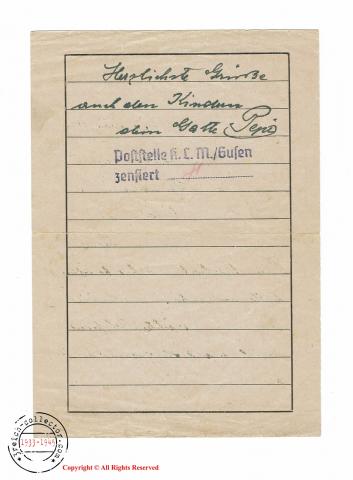 Herzlichste Grüße
auch den Kindern
dein Gatte Pepi
Poststelle K. L. M./Gusen
zensiert
reich-collector.com
1933-1945
Copyright © All Rights Reserved